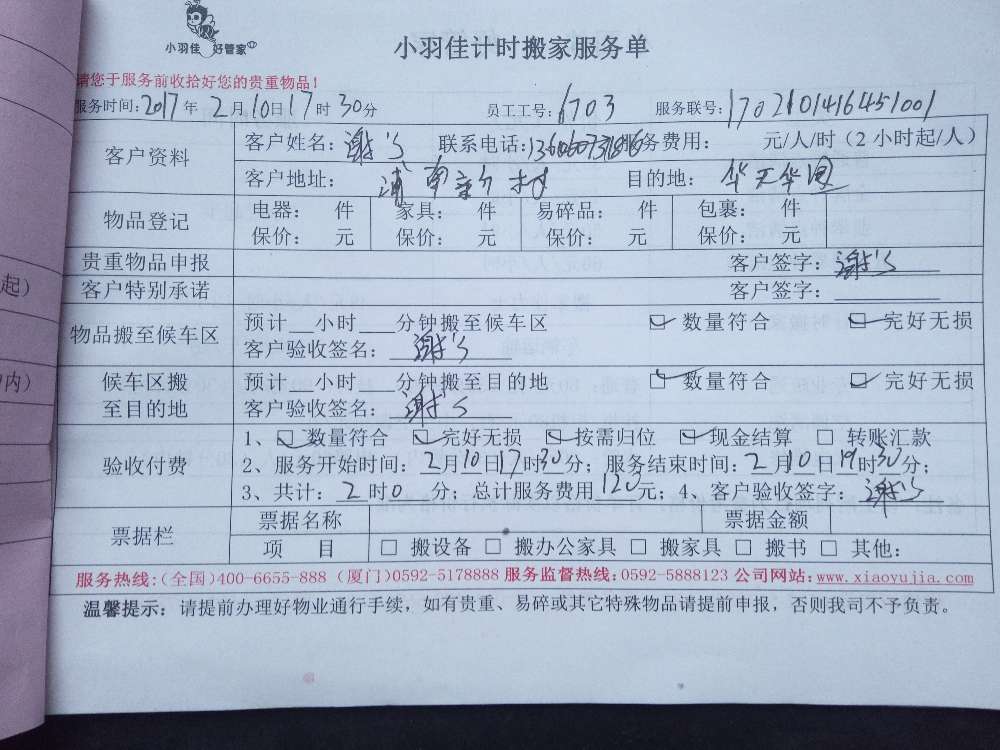 小羽佳 好管家
小羽佳计时搬家服务单
请您于服务前收拾好您的贵重物品！
服务时间：2017年2月10日17时30分 员工工号：6703 服务联号：1702101416451001
客户资料
客户姓名：谢 联系电话： 服务费用： 元/人/时（2小时起/人）
客户地址：浦南新村 目的地：
物品登记
电器： 件 家具： 件 易碎品： 件 包裹： 件
保价： 元 保价： 元 保价： 元 保价： 元
贵重物品申报 客户签字：谢
客户特别承诺 客户签字：
物品搬至候车区
预计__小时___分钟搬至候车区 ☑ 数量符合 ☑ 完好无损
客户验收签名：谢
候车区搬至目的地
预计__小时___分钟搬至目的地 ☑ 数量符合 ☑ 完好无损
客户验收签名：谢
验收付费
1、☑ 数量符合 ☑ 完好无损 ☑ 按需归位 ☑ 现金结算 □ 转账汇款
2、服务开始时间：2月10日17时30分；服务结束时间：2月10日19时30分；
3、共计：2时0分；总计服务费用120元；4、客户验收签字：谢
票据栏
票据名称 票据金额
项 目 □ 搬设备 □ 搬办公家具 □ 搬家具 □ 搬书 □ 其他：
服务热线：(全国)400-6655-888 (厦门)0592-5178888 服务监督热线：0592-5888123 公司网站：www.xiaoyujia.com
温馨提示：请提前办理好物业通行手续，如有贵重、易碎或其它特殊物品请提前申报，否则我司不予负责。
起）
内）